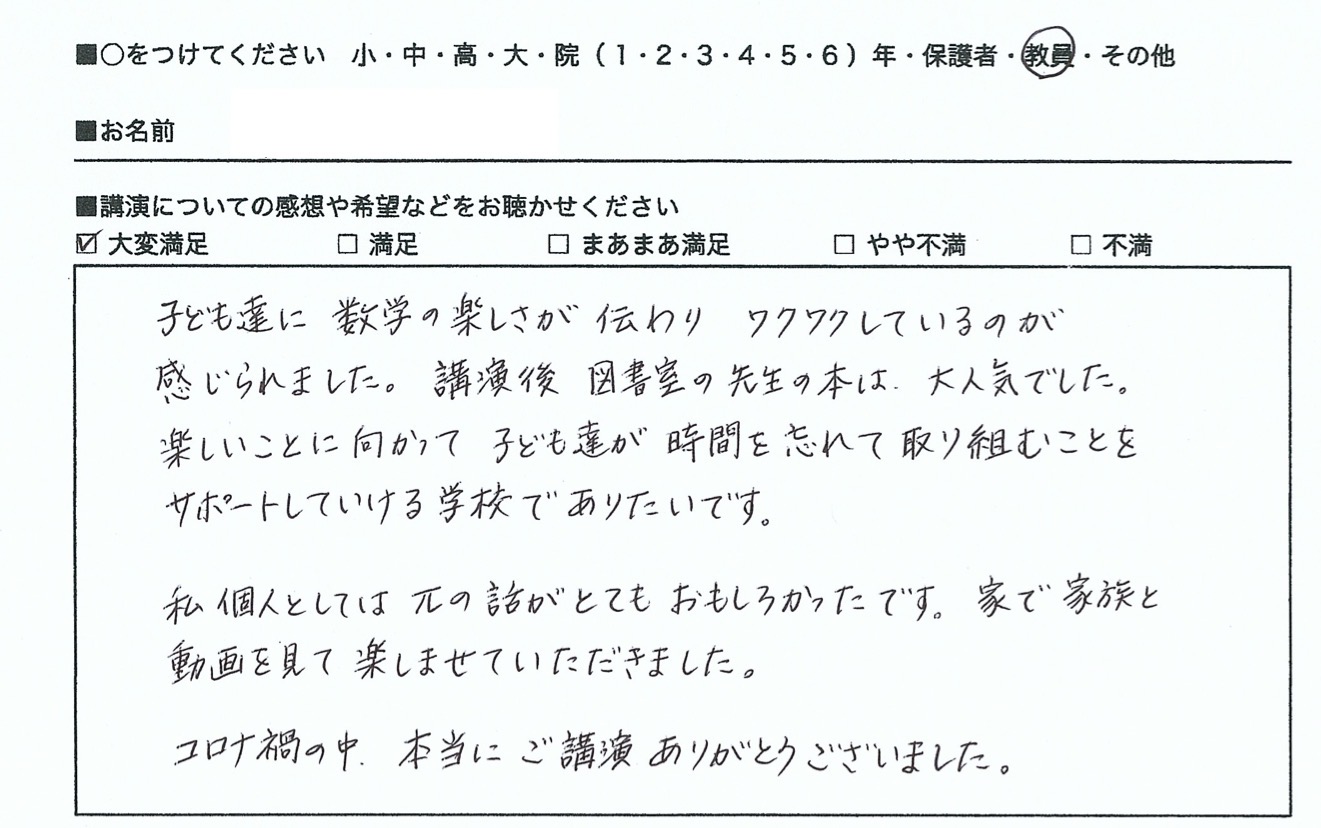 ■○をつけてください 小・中・高・大・院(1・2・3・4・5・6)年・保護者・教員・その他
■お名前
■講演についての感想や希望などをお聴かせください
☑ 大変満足 □ 満足 □ まあまあ満足 □ やや不満 □ 不満
子ども達に 数学の楽しさが 伝わり ワクワクしているのが
感じられました。講演後 図書室の先生の本は、大人気でした。
楽しいことに向かって 子ども達が 時間を忘れて取り組むことを
サポートしていける学校でありたいです。
私個人としては πの話がとても おもしろかったです。家で家族と
動画を見て楽しませていただきました。
コロナ禍の中、本当に ご講演 ありがとうございました。